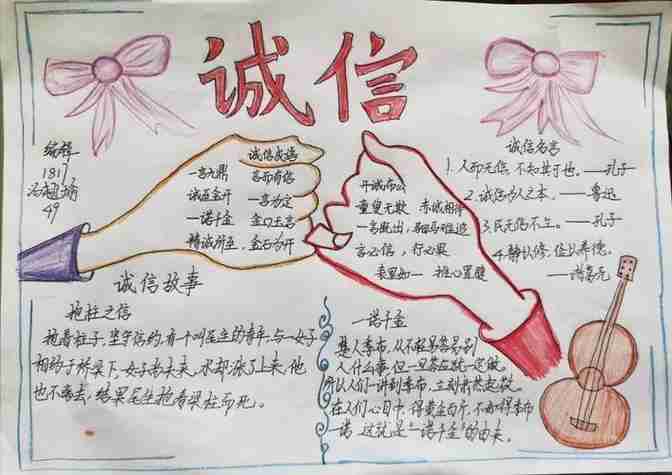 诚信
编辑
1817
49
诚信成语
一言九鼎 言而有信
诚至金开 一言为定
一诺千金 金口玉言
精诚所至，金石为开
开诚布公
童叟无欺 赤诚相待
一言既出，驷马难追
言必信，行必果
表里如一 推心置腹
诚信名言
1.人而无信，不知其可也。——孔子
2.诚信为人之本。——鲁迅
3.民无信不立。——孔子
4.静以修，俭以养德。
——诸葛亮
诚信故事
抱柱之信
抱着柱子，坚守信约，有个叫尾生的青年，与一女子
相约于桥梁下，女子尚未来，水却涨了上来，他
也不离去，结果尾生抱着梁柱而死。
一诺千金
楚人季布，从不轻易答应别
人什么事，但一旦答应就一定做。
所以人们一讲到季布，立刻肃然起敬。
在人们心目中，得黄金百斤，不如得季布
一诺，这就是“一诺千金”的由来。